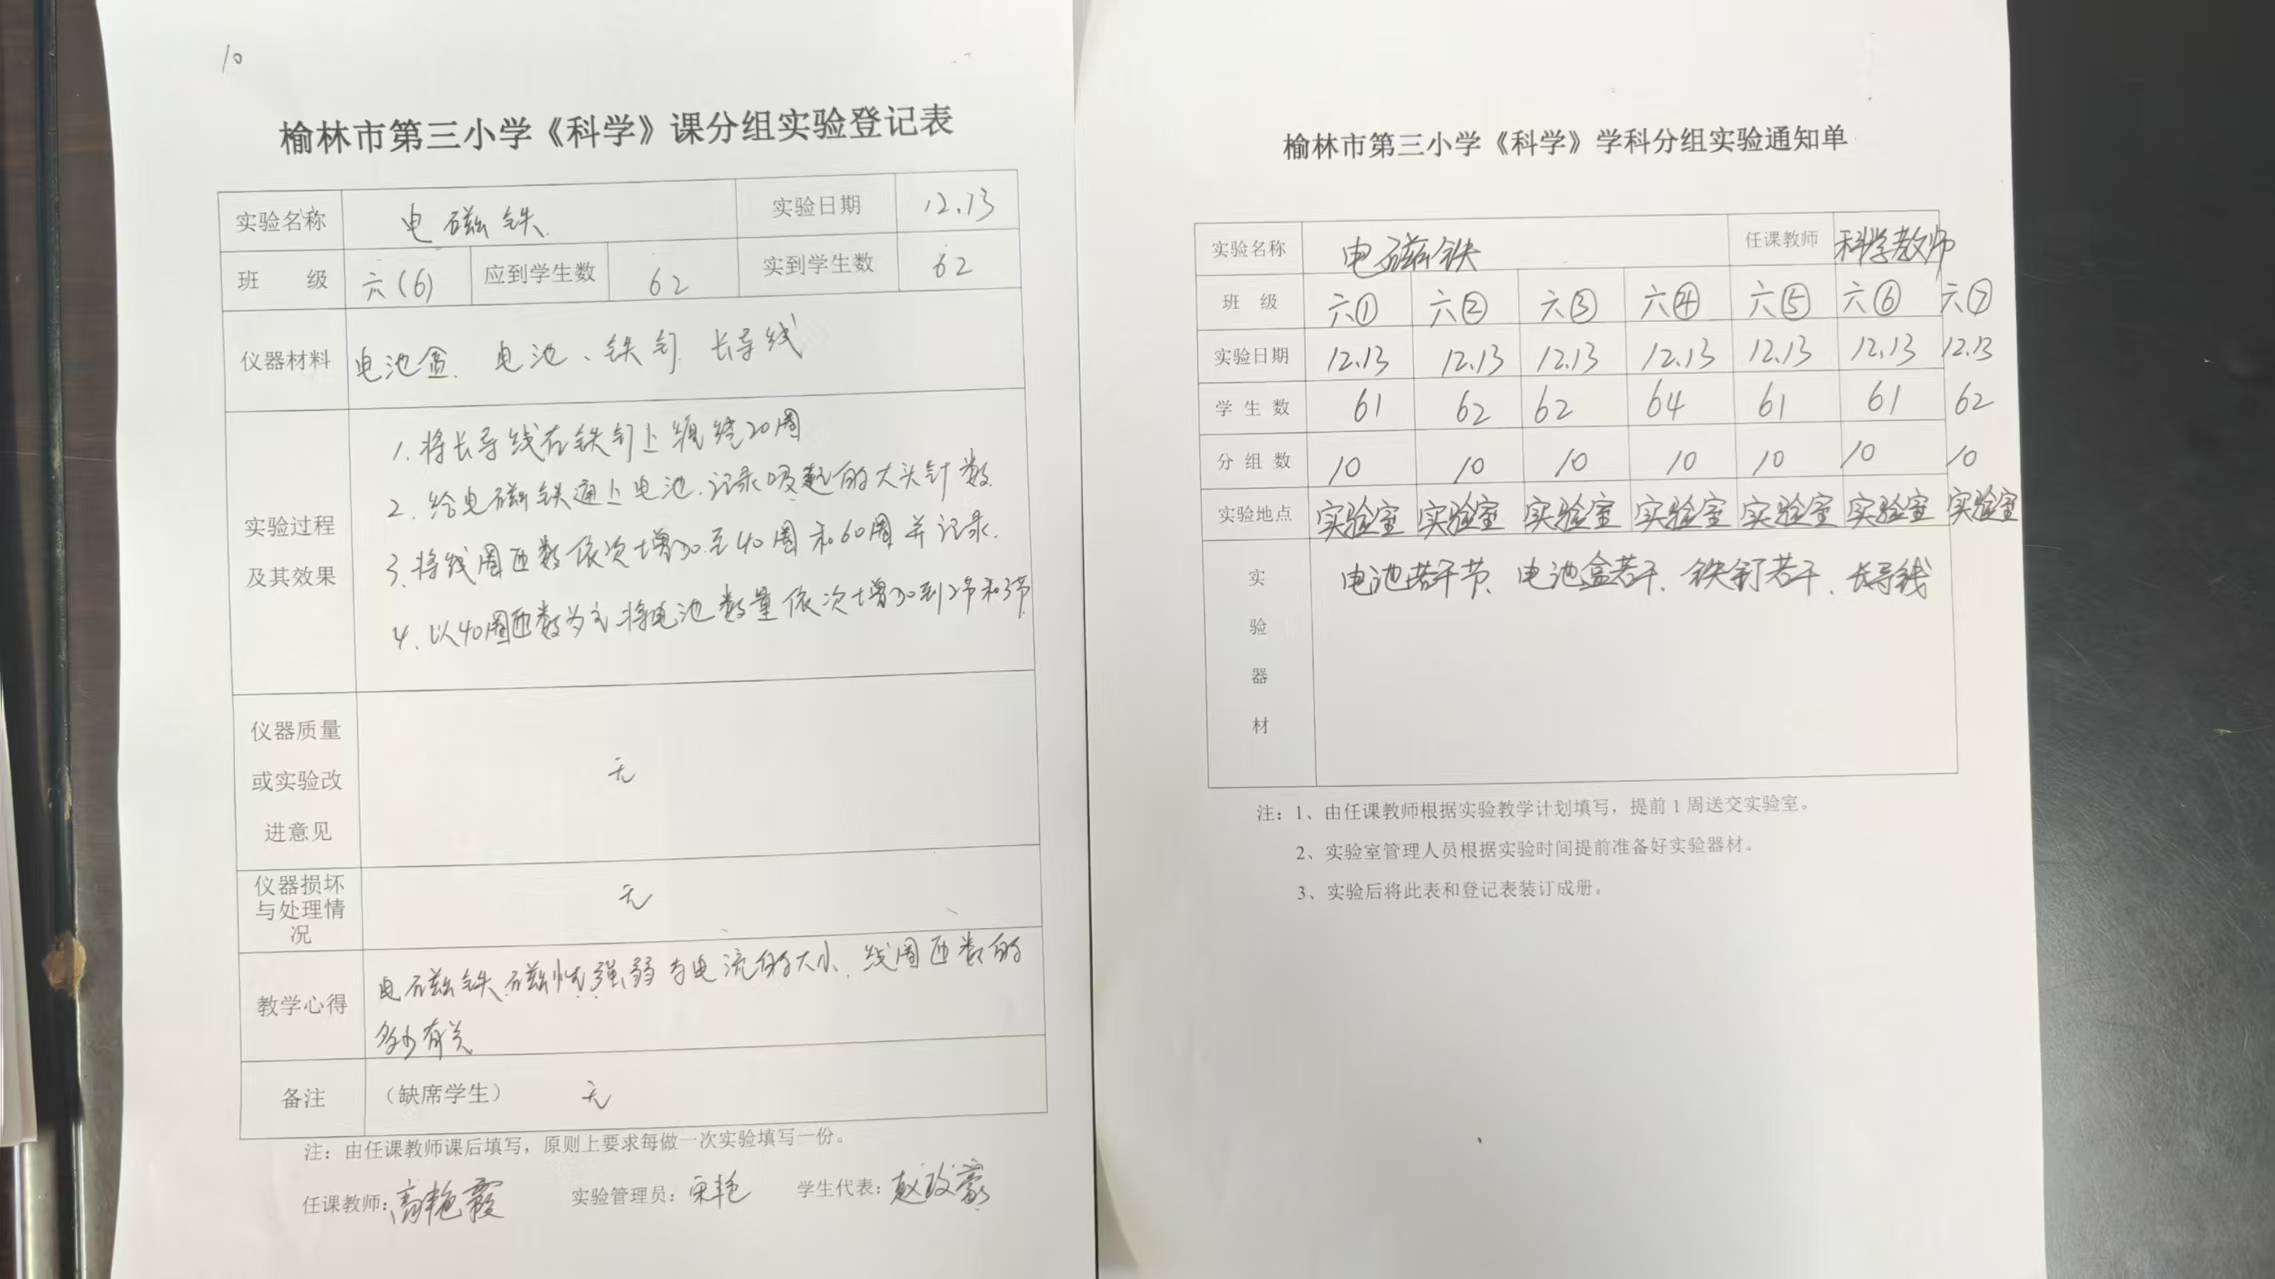 10
榆林市第三小学《科学》课分组实验登记表
实验名称 电磁铁 实验日期 12.13
班 级 六(6) 应到学生数 62 实到学生数 62
仪器材料 电池盒、电池、铁钉 长导线
实验过程
及其效果
1.将长导线在铁钉上缠绕20周
2.给电磁铁通上电池.记录吸起的大头针数
3.将线圈匝数依次增加至40周和60周并记录.
4.以40周匝数为主将电池数量依次增加到2节和3节
仪器质量
或实验改
进意见
无
仪器损坏
与处理情
况
无
教学心得
电磁铁磁性强弱与电流的大小、线圈匝数的
多少有关
备注 （缺席学生） 无
注：由任课教师课后填写，原则上要求每做一次实验填写一份。
任课教师：高艳霞 实验管理员：宋艳 学生代表：赵政豪
榆林市第三小学《科学》学科分组实验通知单
实验名称 电磁铁 任课教师 科学教师
班 级 六① 六② 六③ 六④ 六⑤ 六⑥ 六⑦
实验日期 12.13 12.13 12.13 12.13 12.13 12.13 12.13
学 生 数 61 62 62 64 61 61 62
分 组 数 10 10 10 10 10 10 10
实验地点 实验室 实验室 实验室 实验室 实验室 实验室 实验室
实
验
器
材
电池若干节、电池盒若干、铁钉若干、长导线
注：1、由任课教师根据实验教学计划填写，提前1周送交实验室。
2、实验室管理人员根据实验时间提前准备好实验器材。
3、实验后将此表和登记表装订成册。